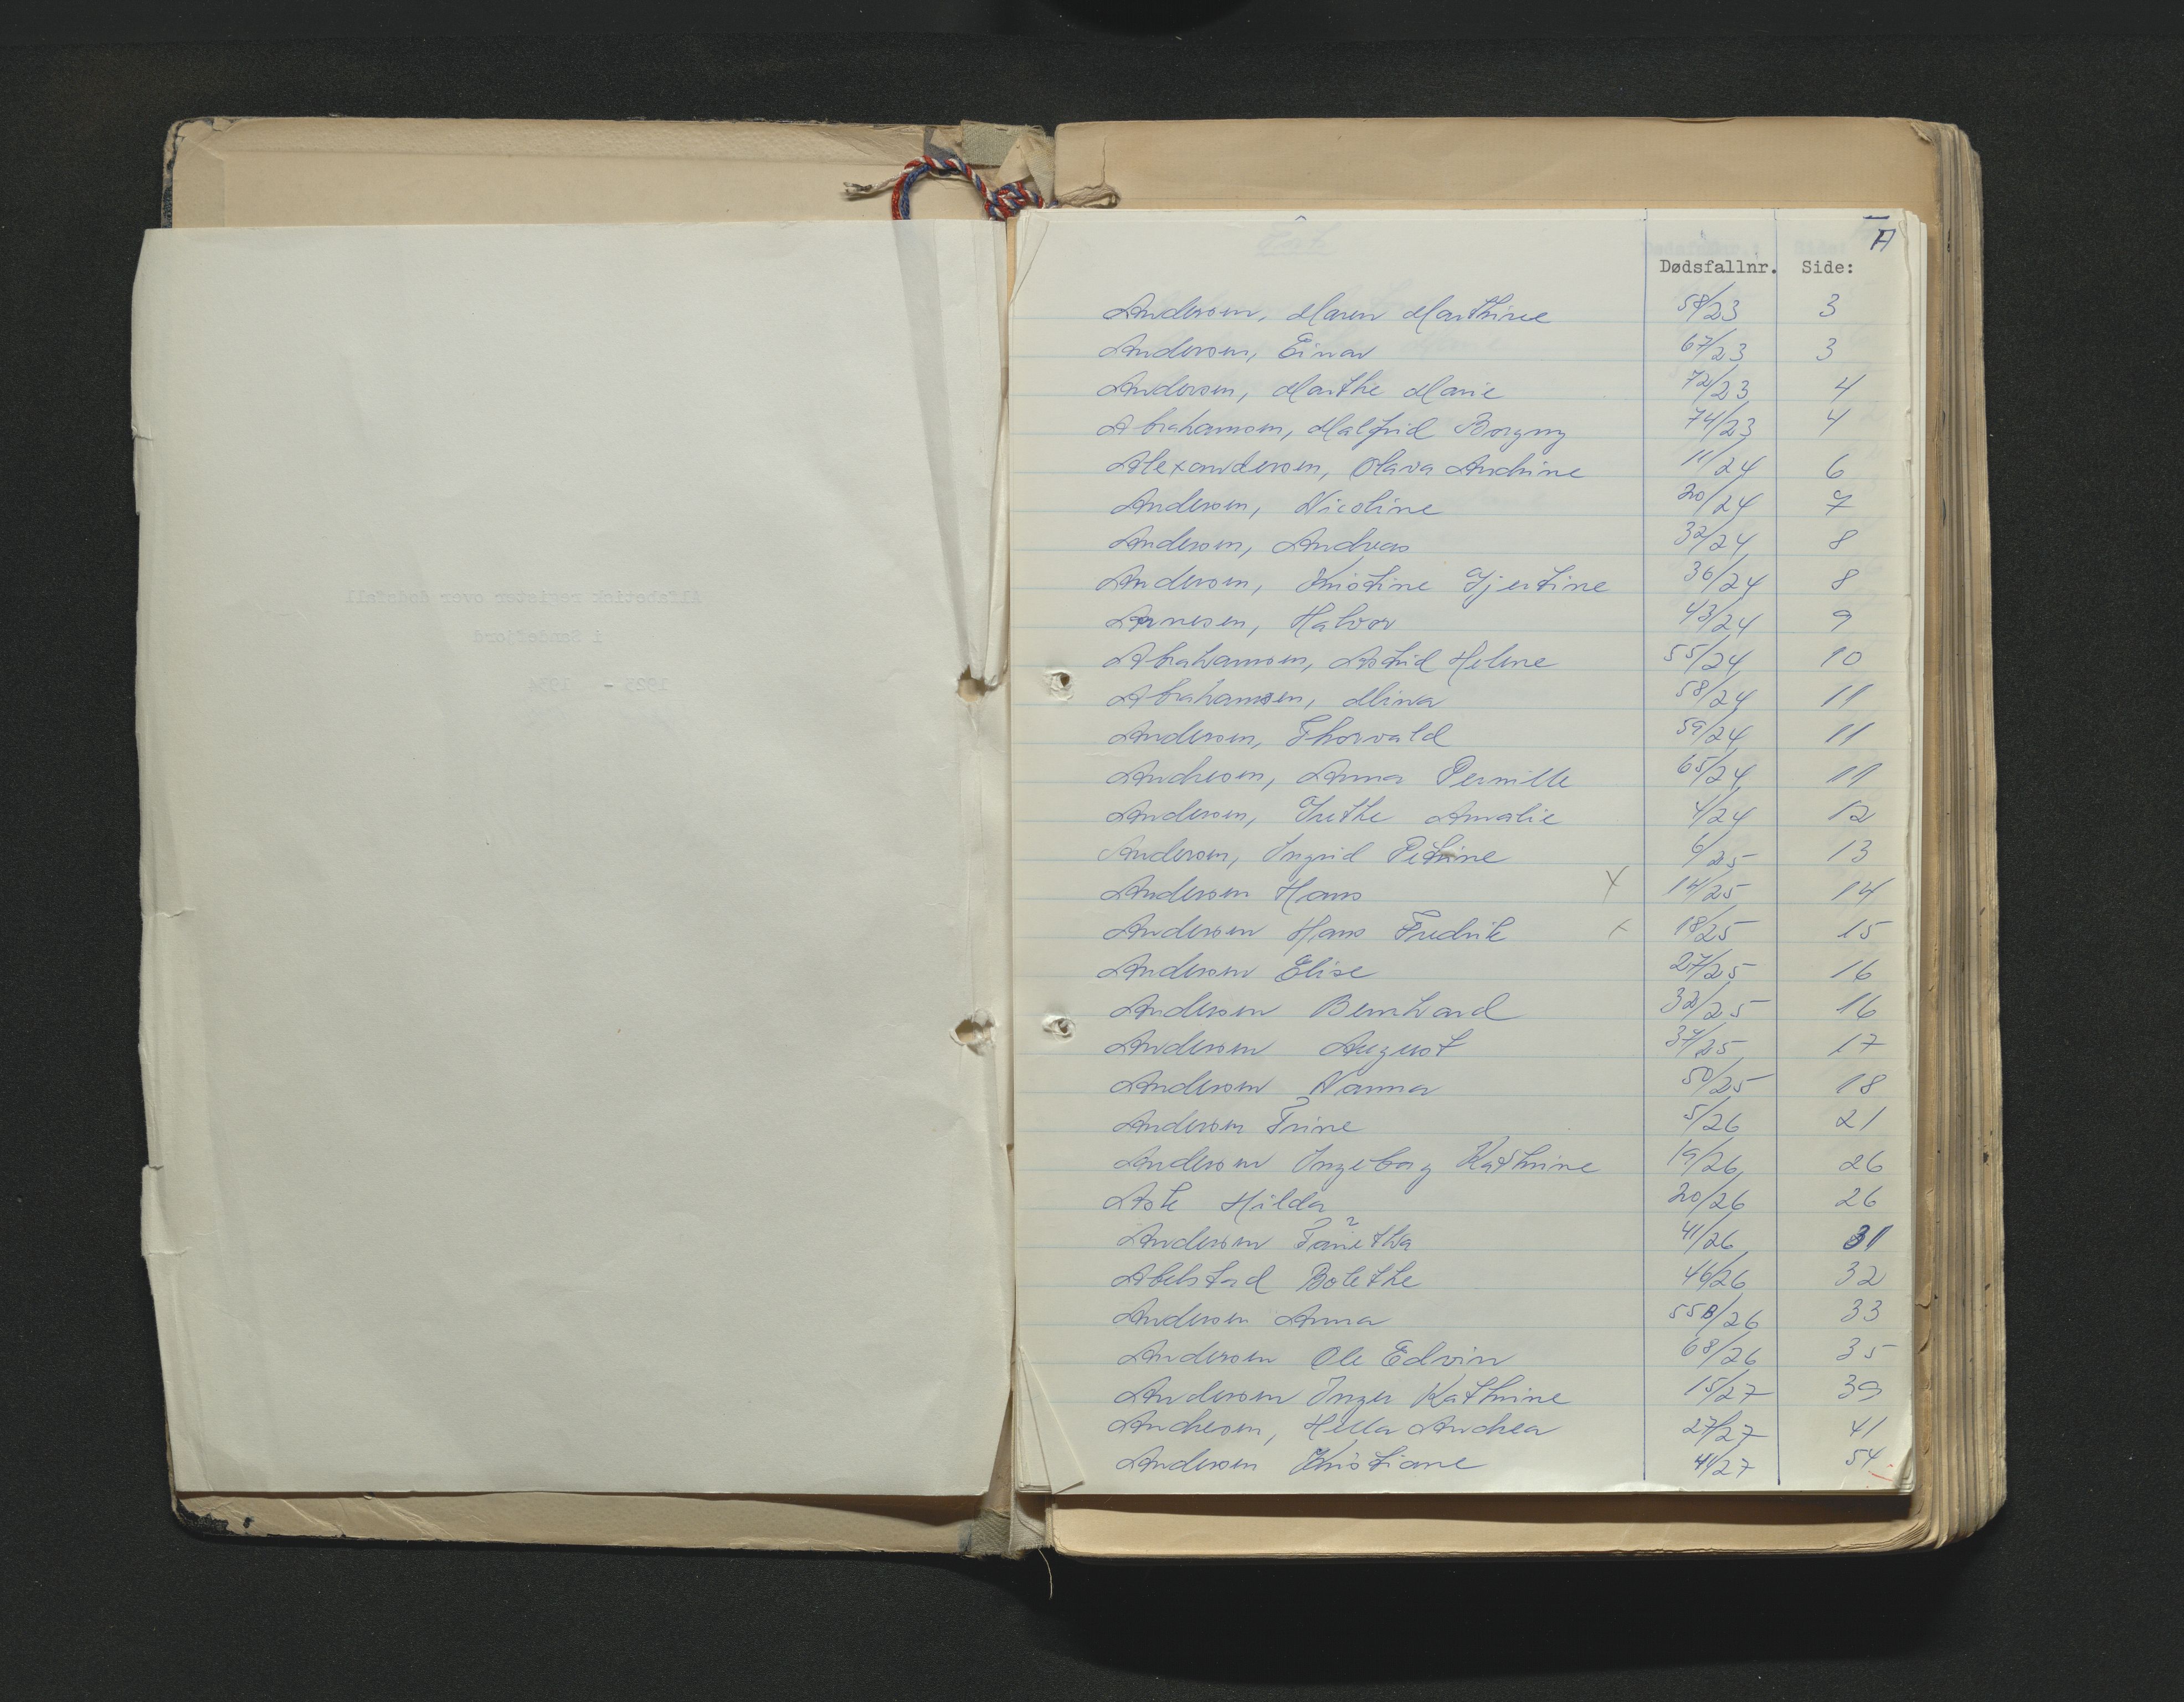 Alfabetisk register over dødsfall
i Sandefjord
1923 - 1934
A
Dødsfallnr. Side:
Andersen, Maren Marthine 58/23 3
Andersen, Einar 67/23 3
Andersen, Marthe Marie 72/23 4
Abrahamsen, Malfrid Borgny 74/23 4
Alexandersen, Olava Andrine 11/24 6
Andersen, Nicoline 20/24 7
Andersen, Andreas 32/24 8
Andersen, Kristine Gjertine 36/24 8
Arnesen, Halvor 43/24 9
Abrahamsen, Astrid Helene 55/24 10
Abrahamsen, Mina 58/24 11
Andersen, Thorvald 59/24 11
Andresen, Anna Pernille 65/24 11
Andersen, Grethe Amalie 4/24 12
Andersen, Ingrid Petrine 6/25 13
Andersen Hans x 14/25 14
Andersen Hans Fredrik x 18/25 15
Andersen Elise 27/25 16
Andersen Bernhard 32/25 16
Andersen August 37/25 17
Andersen Nanna 50/25 18
Andersen Trine 5/26 21
Andersen Ingeborg Kathrine 19/26 26
Ask Hilda 20/26 26
Andersen 41/26 31
Abelsted Bolethe 46/26 32
Andersen Anna 55B/26 33
Andersen Ole Edvin 68/26 35
Andersen Inger Kathrine 15/27 39
Andresen, Hella Andrea 27/27 41
Andersen Kristiane 41/27 54